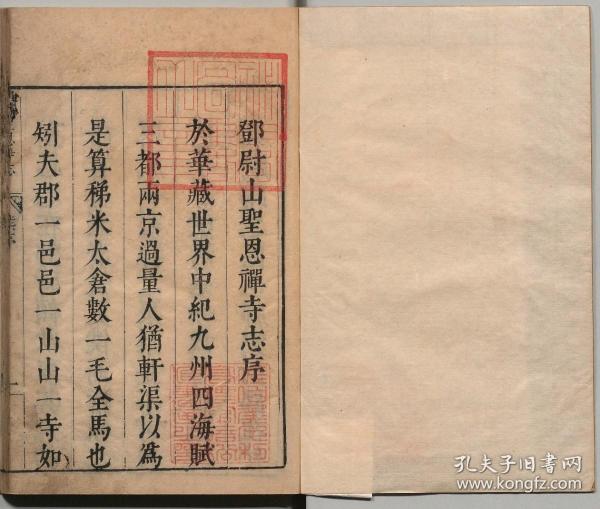 鄧尉山聖恩禪寺志序
於華藏世界中紀九州四海賦
三都兩京過量人猶軒渠以為
是算稊米太倉數一毛全馬也
矧夫郡一邑邑一山山一寺如
孔夫子旧书网
www.kongfz.com